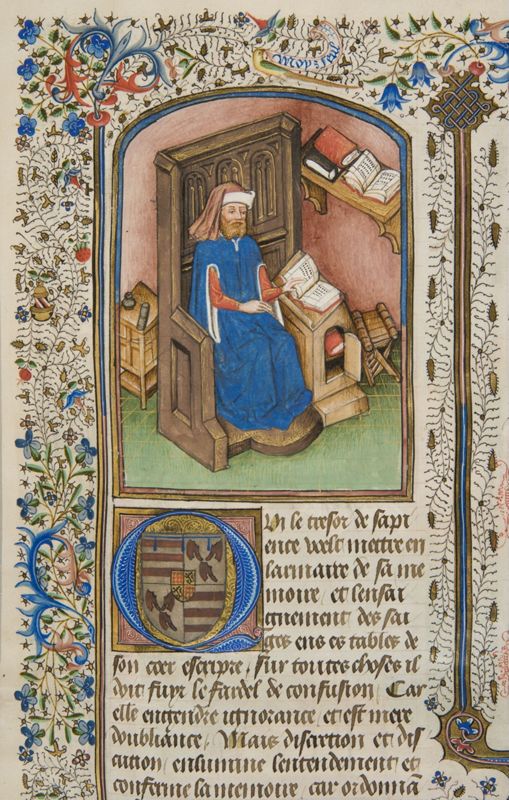 QVi le tresor de sapi
ence voelt mettre en
larmaire de sa me
moire / et lensai
gnement des sai
ges ens es tables de
son coer escripre / sur toutes choses il
doit fuyr le fardel de confusion / Car
elle engendre ignorance et est mere
doubliance / Mais discretion et dis
cution enlumine lentendement et
conferme la memoire / car ordonnā